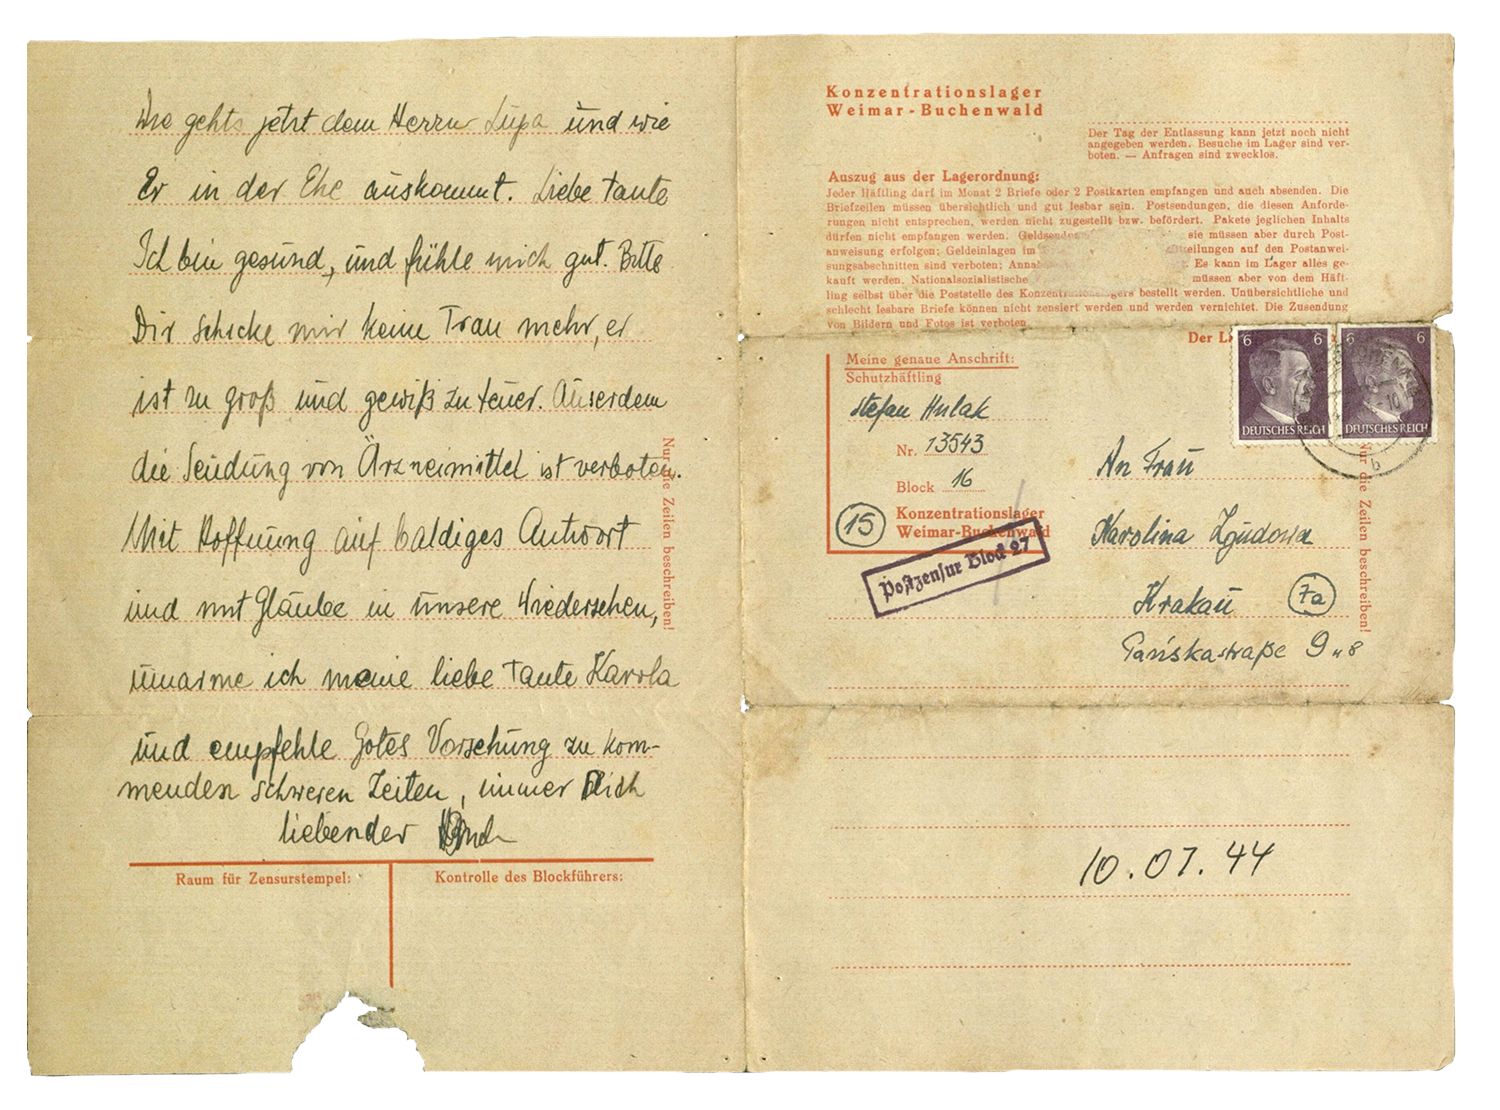 Wie gehts jetzt dem Herrn Lupa und wie
Er in der Ehe auskommt. Liebe Tante
Ich bin gesund, und fühle mich gut. Bitte
Dir schicke mir keine Tran mehr, er
ist zu groß und gewiß zu teuer. Auserdem
die Sendung von Ärzneimittel ist verboten.
Mit Hoffnung auf baldiges Antwort
und mit Glaube in unsere Wiedersehen,
umarme ich meine liebe Tante Karola
und empfehle Gotes Vorsehung zu kom-
menden schweren Zeiten, immer Dich
liebender
Nur die Zeilen beschreiben!
Raum für Zensurstempel:
Kontrolle des Blockführers:
Konzentrationslager
Weimar-Buchenwald
Der Tag der Entlassung kann jetzt noch nicht
angegeben werden. Besuche im Lager sind ver-
boten. — Anfragen sind zwecklos.
Auszug aus der Lagerordnung:
Jeder Häftling darf im Monat 2 Briefe oder 2 Postkarten empfangen und auch absenden. Die
Briefzeilen müssen übersichtlich und gut lesbar sein. Postsendungen, die diesen Anforde-
rungen nicht entsprechen, werden nicht zugestellt bzw. befördert. Pakete jeglichen Inhalts
dürfen nicht empfangen werden. sie müssen aber durch Post-
anweisung erfolgen; Geldeinlagen im auf den Postanwei-
sungsabschnitten sind verboten; Es kann im Lager alles ge-
kauft werden. Nationalsozialistische müssen aber von dem Häft-
ling selbst über die Poststelle des Konzentrationslagers bestellt werden. Unübersichtliche und
schlecht lesbare Briefe können nicht zensiert werden und werden vernichtet. Die Zusendung
von Bildern und Fotos ist verboten.
Der
6 6
DEUTSCHES REICH
6 6
DEUTSCHES REICH
b
Meine genaue Anschrift:
Schutzhäftling
Stefan Hulak
Nr. 13543
Block 16
15 Konzentrationslager
Weimar-Buchenwald
Postzensur Block 27
An Frau
Karolina Zgudowa
Krakau 7a
Pańskastraße 9 8
Nur die Zeilen beschreiben!
10.07.44